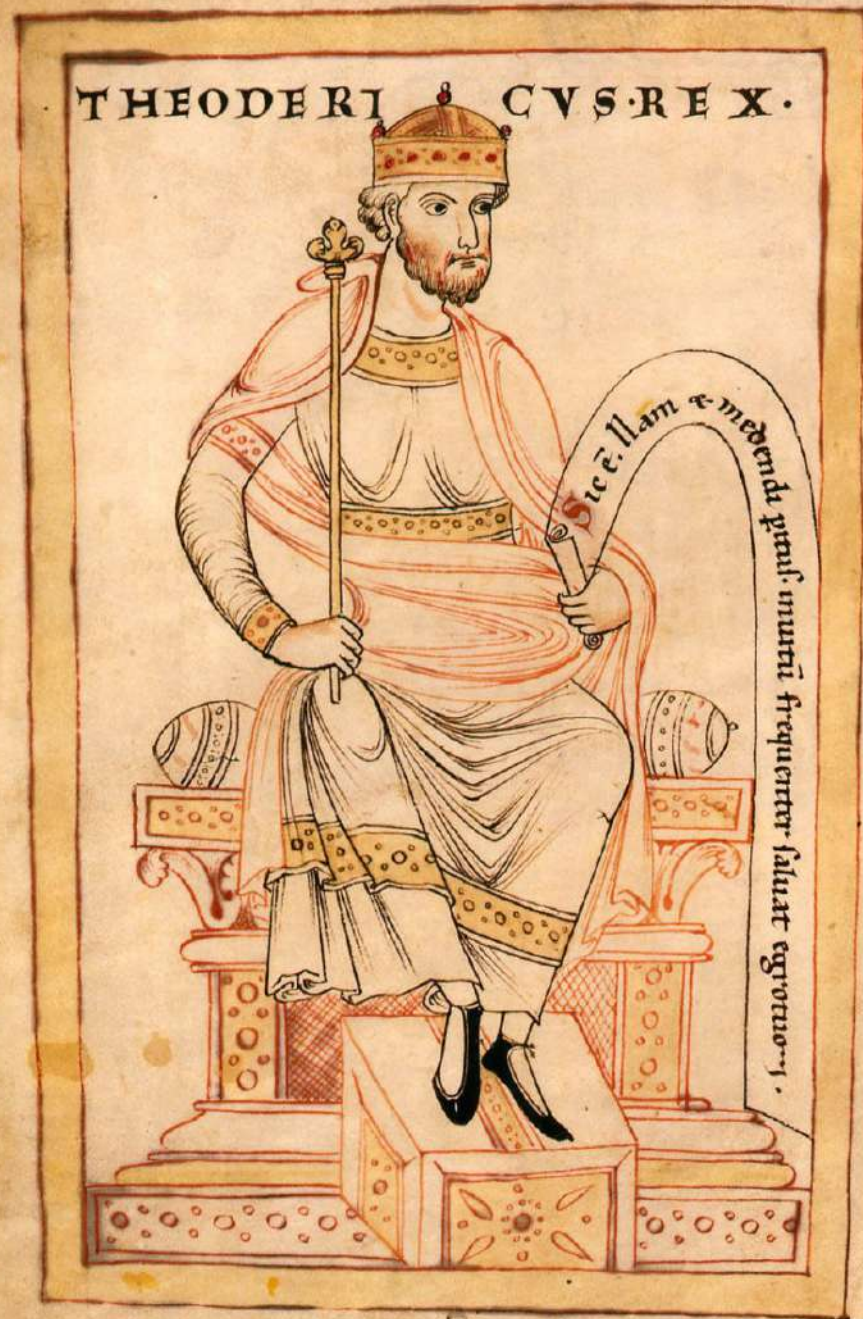 THEODERICVS·REX·
Sic ē. Nam & medendi ꝑitus. inuitū frequenter saluat egrotuoꝫ.